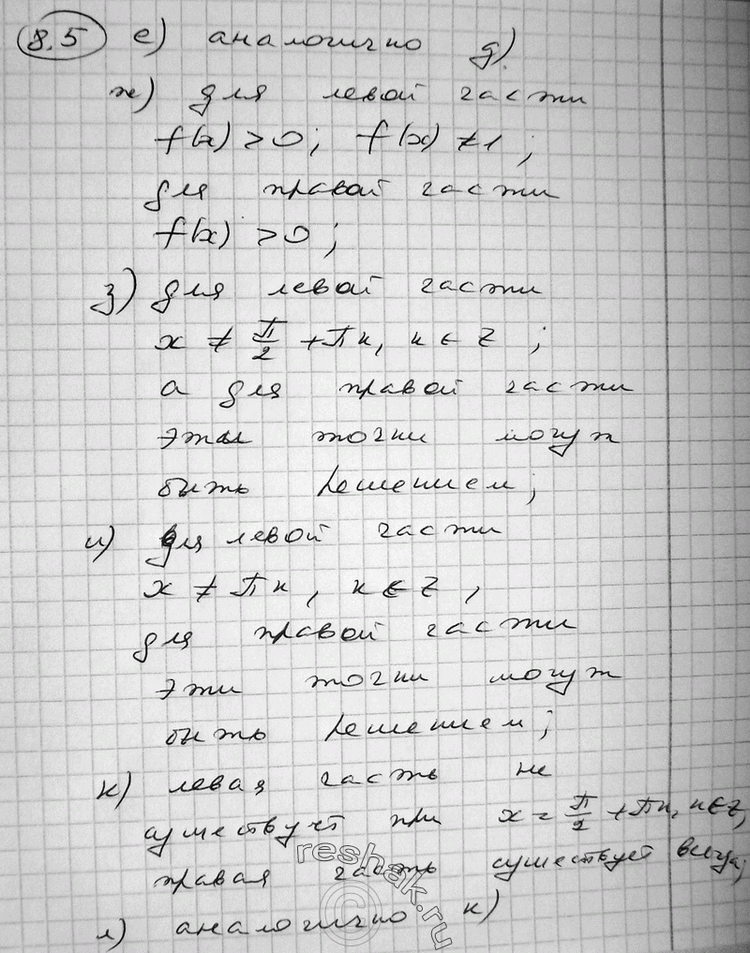 8.5 е) аналогично д)
ж) для левой части
f(x) > 0; f(x) ≠ 1;
для правой части
f(x) > 0;
з) для левой части
x ≠ π/2 + πn, n ∈ Z;
а для правой части
эти точки могут
быть решением;
и) для левой части
x ≠ πn, n ∈ Z,
для правой части
эти точки могут
быть решением;
к) левая часть не
существует при x = π/2 + πn, n ∈ Z,
правая часть существует всегда;
л) аналогично к)
reshak.ru
©